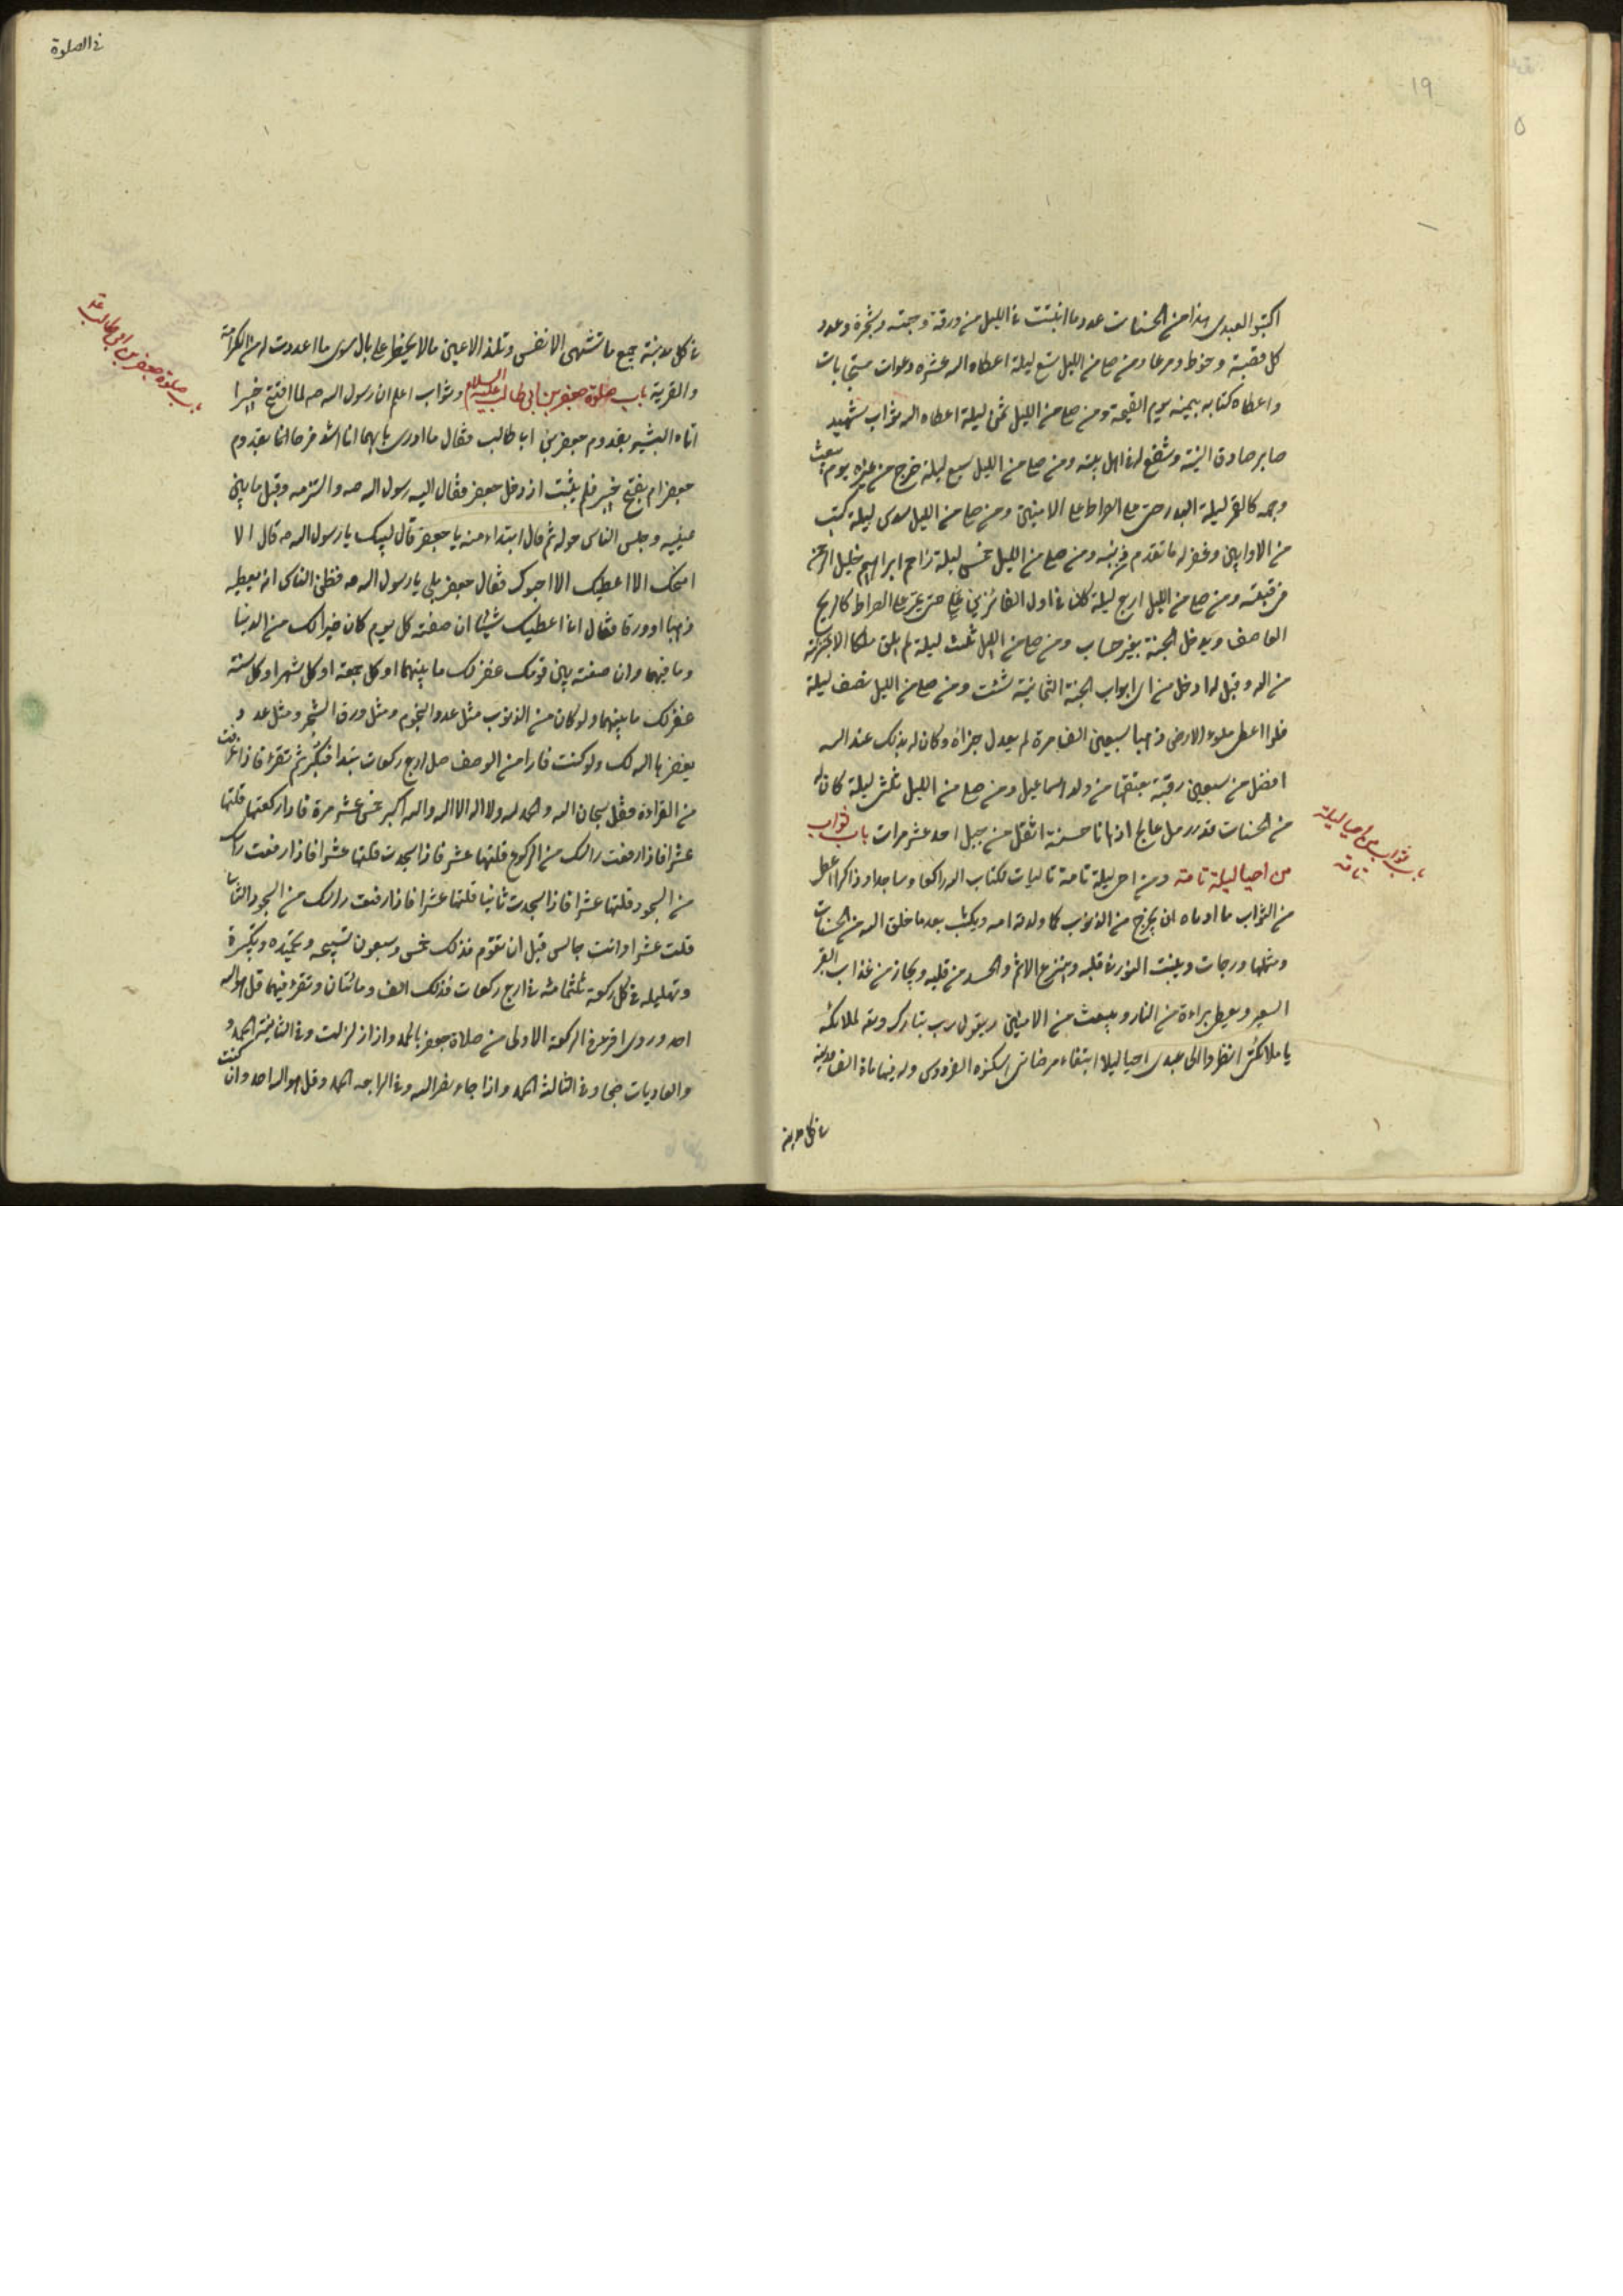 ١٩
اكتبوا لعبدى هذا من الحسنات عدد ما انبتت فى الليل من ورقة وحبة وشجرة وعدد
كل قصبة وخوط ومرعا ومن صلى من الليل تسع ليلة اعطاه الله عشره دعوات مستجابات
واعطاه كتابه بيمينه يوم القيمة ومن صلى من الليل ثمن ليلة اعطاه الله ثواب شهيد
صابر صادق النية وشفع له فى اهل بيته ومن صلى من الليل سبع ليلة خرج من قبره يوم يبعث
وجهه كالقمر ليلة البدر حتى يمر على الصراط مع الامنين ومن صلى من الليل سدس ليلة كتب
من الاوابين وغفر له ما تقدم من ذنبه ومن صلى من الليل خمس ليلة زاحم ابراهيم خليل الرحمن
فى قبته ومن صلى من الليل اربع ليلة كان فى اول الفائزين حتى يمر على الصراط كالريح
العاصف ويدخل الجنة بغير حساب ومن صلى من الليل ثلث ليلة لم يلق ملكا الا غبطه بمنزلته
من الله وقيل له ادخل من اى ابواب الجنة الثمانية شئت ومن صلى من الليل نصف ليلة
فلوا اعطى ملوء الارض ذهبا سبعين الف مرة لم يعدل جزاؤه وكان له بذلك عند الله
افضل من سبعين رقبة يعتقها من ولد اسماعيل ومن صلى من الليل ثلثى ليلة كان له
من الحسنات قدر رمل عالج ادناها حسنة اثقل من جبل احد عشر مرات باب ثواب
من احيا ليلة تامة ومن احى ليلة تامة تاليات لكتاب الله راكعا وساجدا وذاكرا اعطى
من الثواب ما ادناه ان يخرج من الذنوب كما ولدته امه ويكتب بعدد ما خلق الله من الحسنات
ومثلها درجات ويثبت النور فى قلبه وينزع الاثم والحسد من قلبه ويجاز من عذاب القبر
السعير ويعطى براءة من النار ويبعث من الامنين ويقول رب تبارك وتعه لملائكته
يا ملائكتى انظروا الى عبدى احيا ليلا ابتغاء مرضاتى اسكنوه الفردوس وله فيها مائة الف مدينة
فى كل مدينة
باب ثواب من احيا ليلة
تامة
فى الصلوة
فى كل مدينة جميع ما تشتهى الانفس وتلذ الاعين ومالا يخطر على بال سوى ما اعددت له من الكرامة
والقربة باب صلوة جعفر بن ابى طالب عليه السلام وثواب اعلم ان رسول الله صه لما افتتح خيبرا
اتاه البشير بقدوم جعفر بن ابا طالب فقال ما ادرى بايهما انا اشد فرحا انا بقدوم
جعفر ام بفتح خيبر فلم يلبث اذ دخل جعفر فقال اليه رسول الله صه والتزمه وقبل ما بين
عينيه وجلس الناس حوله ثم قال ابتداء منه يا جعفر قال لبيك يا رسول الله صه قال الا
امنحك الا اعطيك الا احبوك فقال جعفر بلى يا رسول الله صه فظن الناس انه يعطيه
ذهبا او ورقا فقال انا اعطيك شيئا ان صنعته كل يوم كان خيرا لك من الدنيا
وما فيها وان صنعته بين يومك غفر لك ما بينهما او كل جمعة او كل شهر او كل سنة
غفر لك ما بينهما ولو كان من الذنوب مثل عدد النجوم ومثل ورق الشجر ومثل عدد
يغفرها الله لك ولو كنت فارا من الوصف صل اربع ركعات تبتدا فتكبر ثم تقرء فاذا فرغت
من القراءة فقل سبحان الله والحمد لله ولا اله الا الله والله اكبر خمس عشر مرة فاذا ركعتها قلتها
عشرا فاذا رفعت راسك من الركوع قلتها عشر فاذا سجدت قلتها عشرا فاذا رفعت راسك
من السجود قلتها عشرا فاذا سجدت ثانيا قلتها عشرا فاذا رفعت راسك من السجود الثانيا
قلت عشرا وانت جالس قبل ان تقوم فذلك خمس وسبعون تسبيحه وتحميده وتكبيرة
وتهليله فى كل ركعة ثلثمائه فى اربع ركعات فذلك الف ومائتان وتقرء فيهما قل هو الله
احد وروى اقرء فى الركعة الاولى من صلاة جعفر بالحمد واذا زلزلت وفى الثانية الحمد و
والعاديات ضحا وفى الثالثة الحمد واذا جاء نصر الله وفى الرابعه الحمد وقل هو الله احد وان كنت
باب صلوة جعفر بن ابى طالب عه